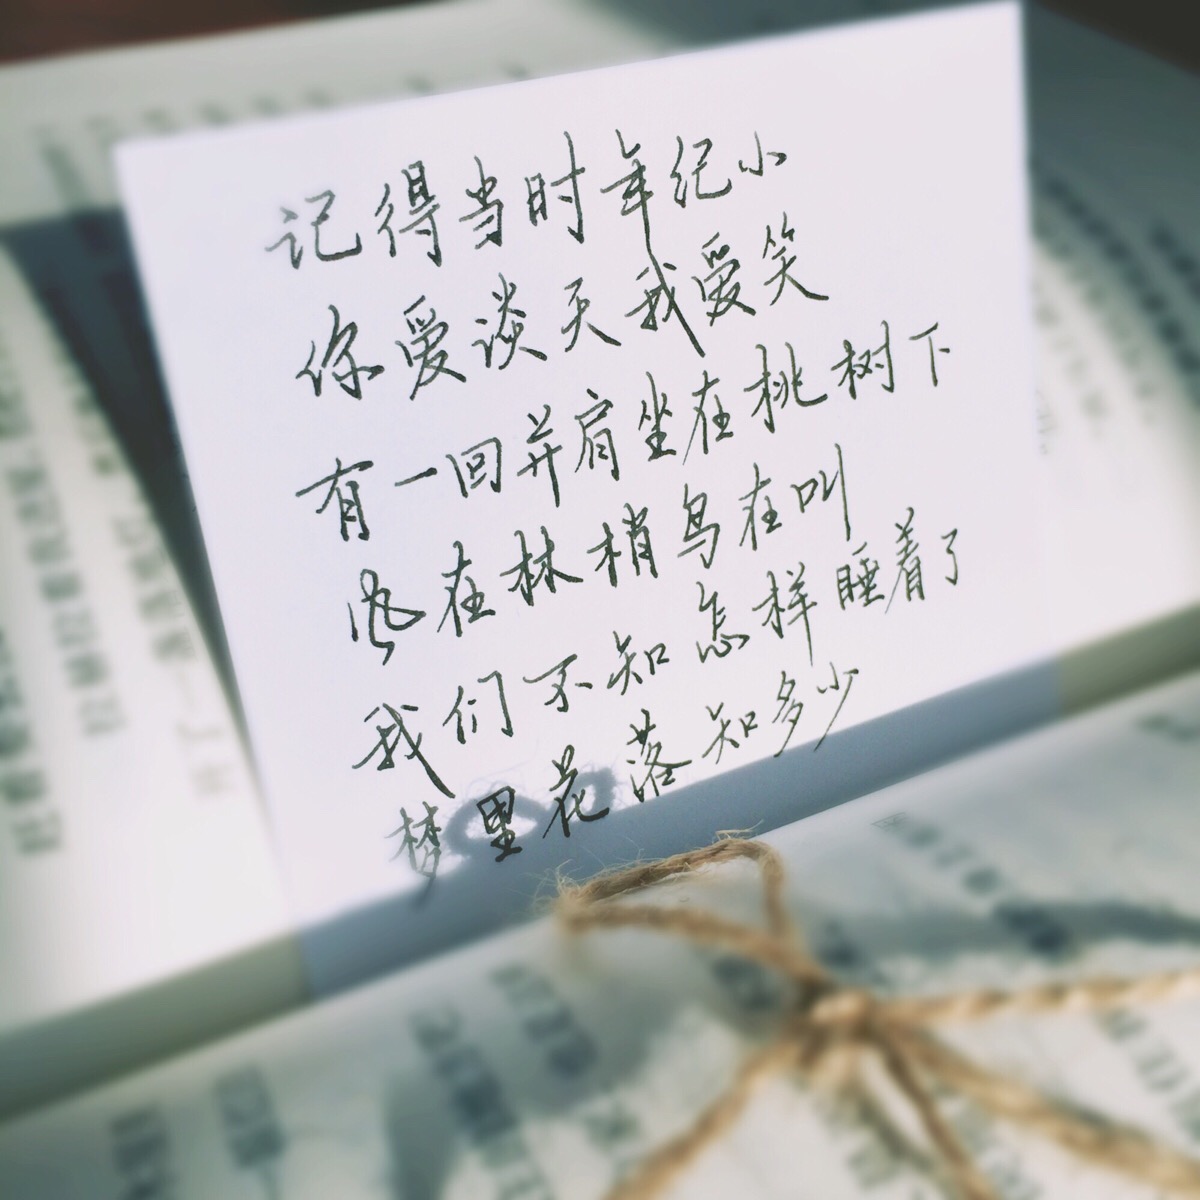 记得当时年纪小
你爱谈天我爱笑
有一回并肩坐在桃树下
风在林梢鸟在叫
我们不知怎样睡着了
梦里花落知多少